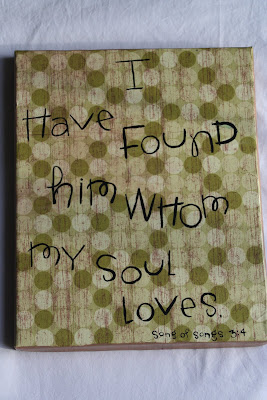 I
Have Found
him Whom
my Soul
Loves.
Song of Songs 3:4